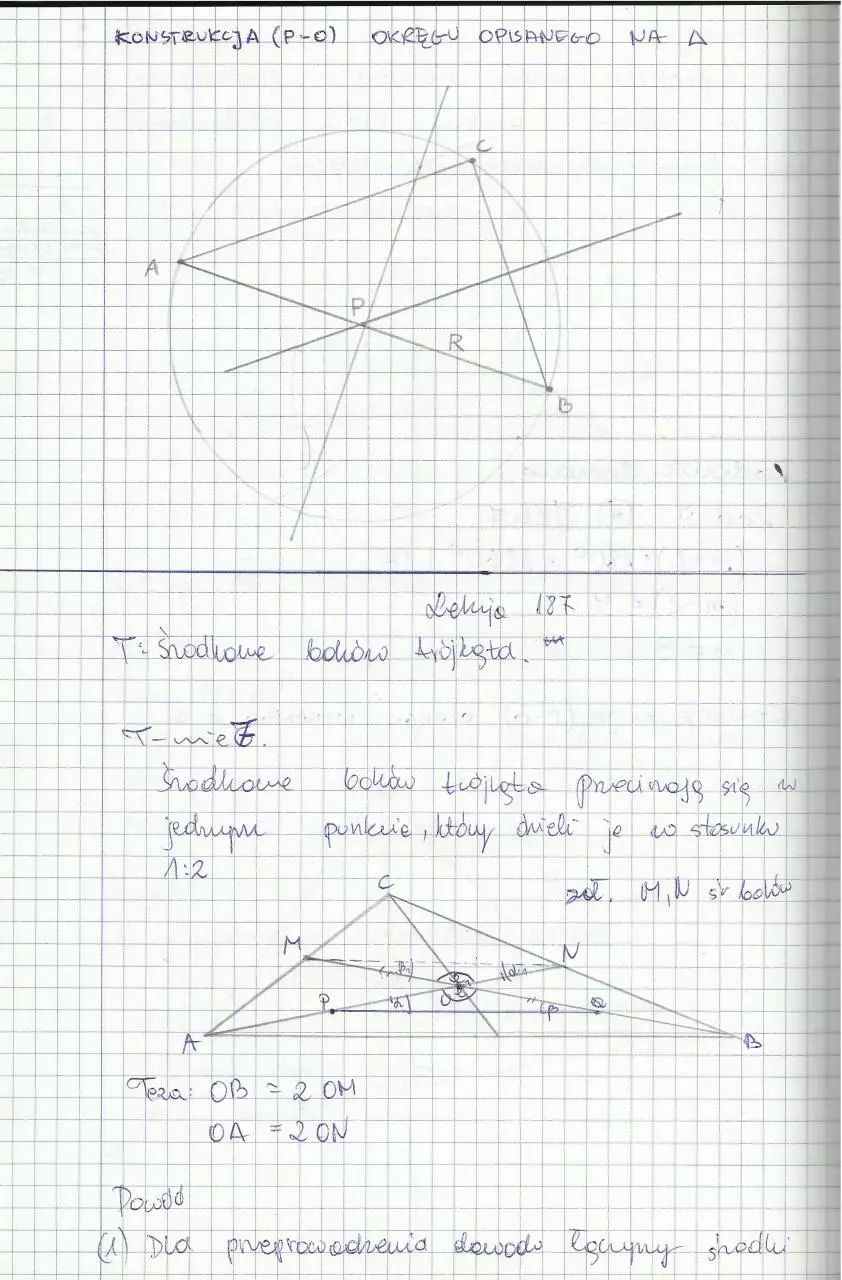 KONSTRUKCJA (P-O) OKRĘGU OPISANEGO NA Δ
C
A
P
R
B
Lekcja 187
T: Środkowe boków trójkąta.
T-nie
Środkowe boków trójkąta przecinają się w
jednym punkcie, który dzieli je w stosunku
1:2
zał. M, N śr boków
C
M
N
P
O
Q
A
B
Teza: OB = 2 OM
OA = 2 ON
Dowód
(1) Dla przeprowadzenia dowodu łączymy środki